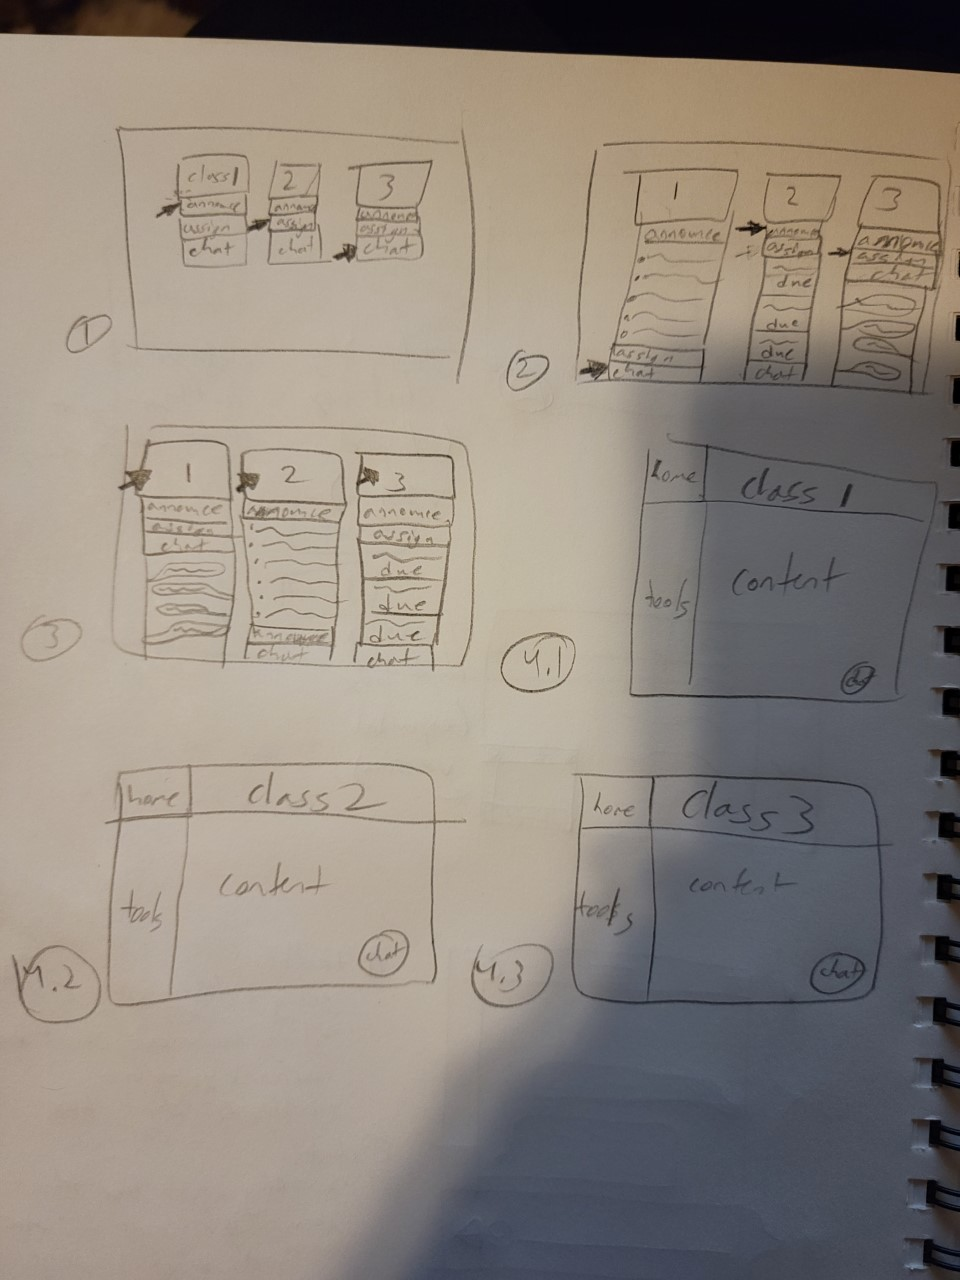 class 1
announce
assign
chat
2
announ
assign
chat
3
announce
assign
chat
1
1
announce
assign
chat
2
announce
assign
due
due
due
chat
3
announce
assign
chat
2
1
announce
assign
chat
2
announce
announce
chat
3
announce
assign
due
due
due
chat
3
home
class 1
tools
content
chat
4.1
home
class 2
tools
content
chat
4.2
home
class 3
tools
content
chat
4.3